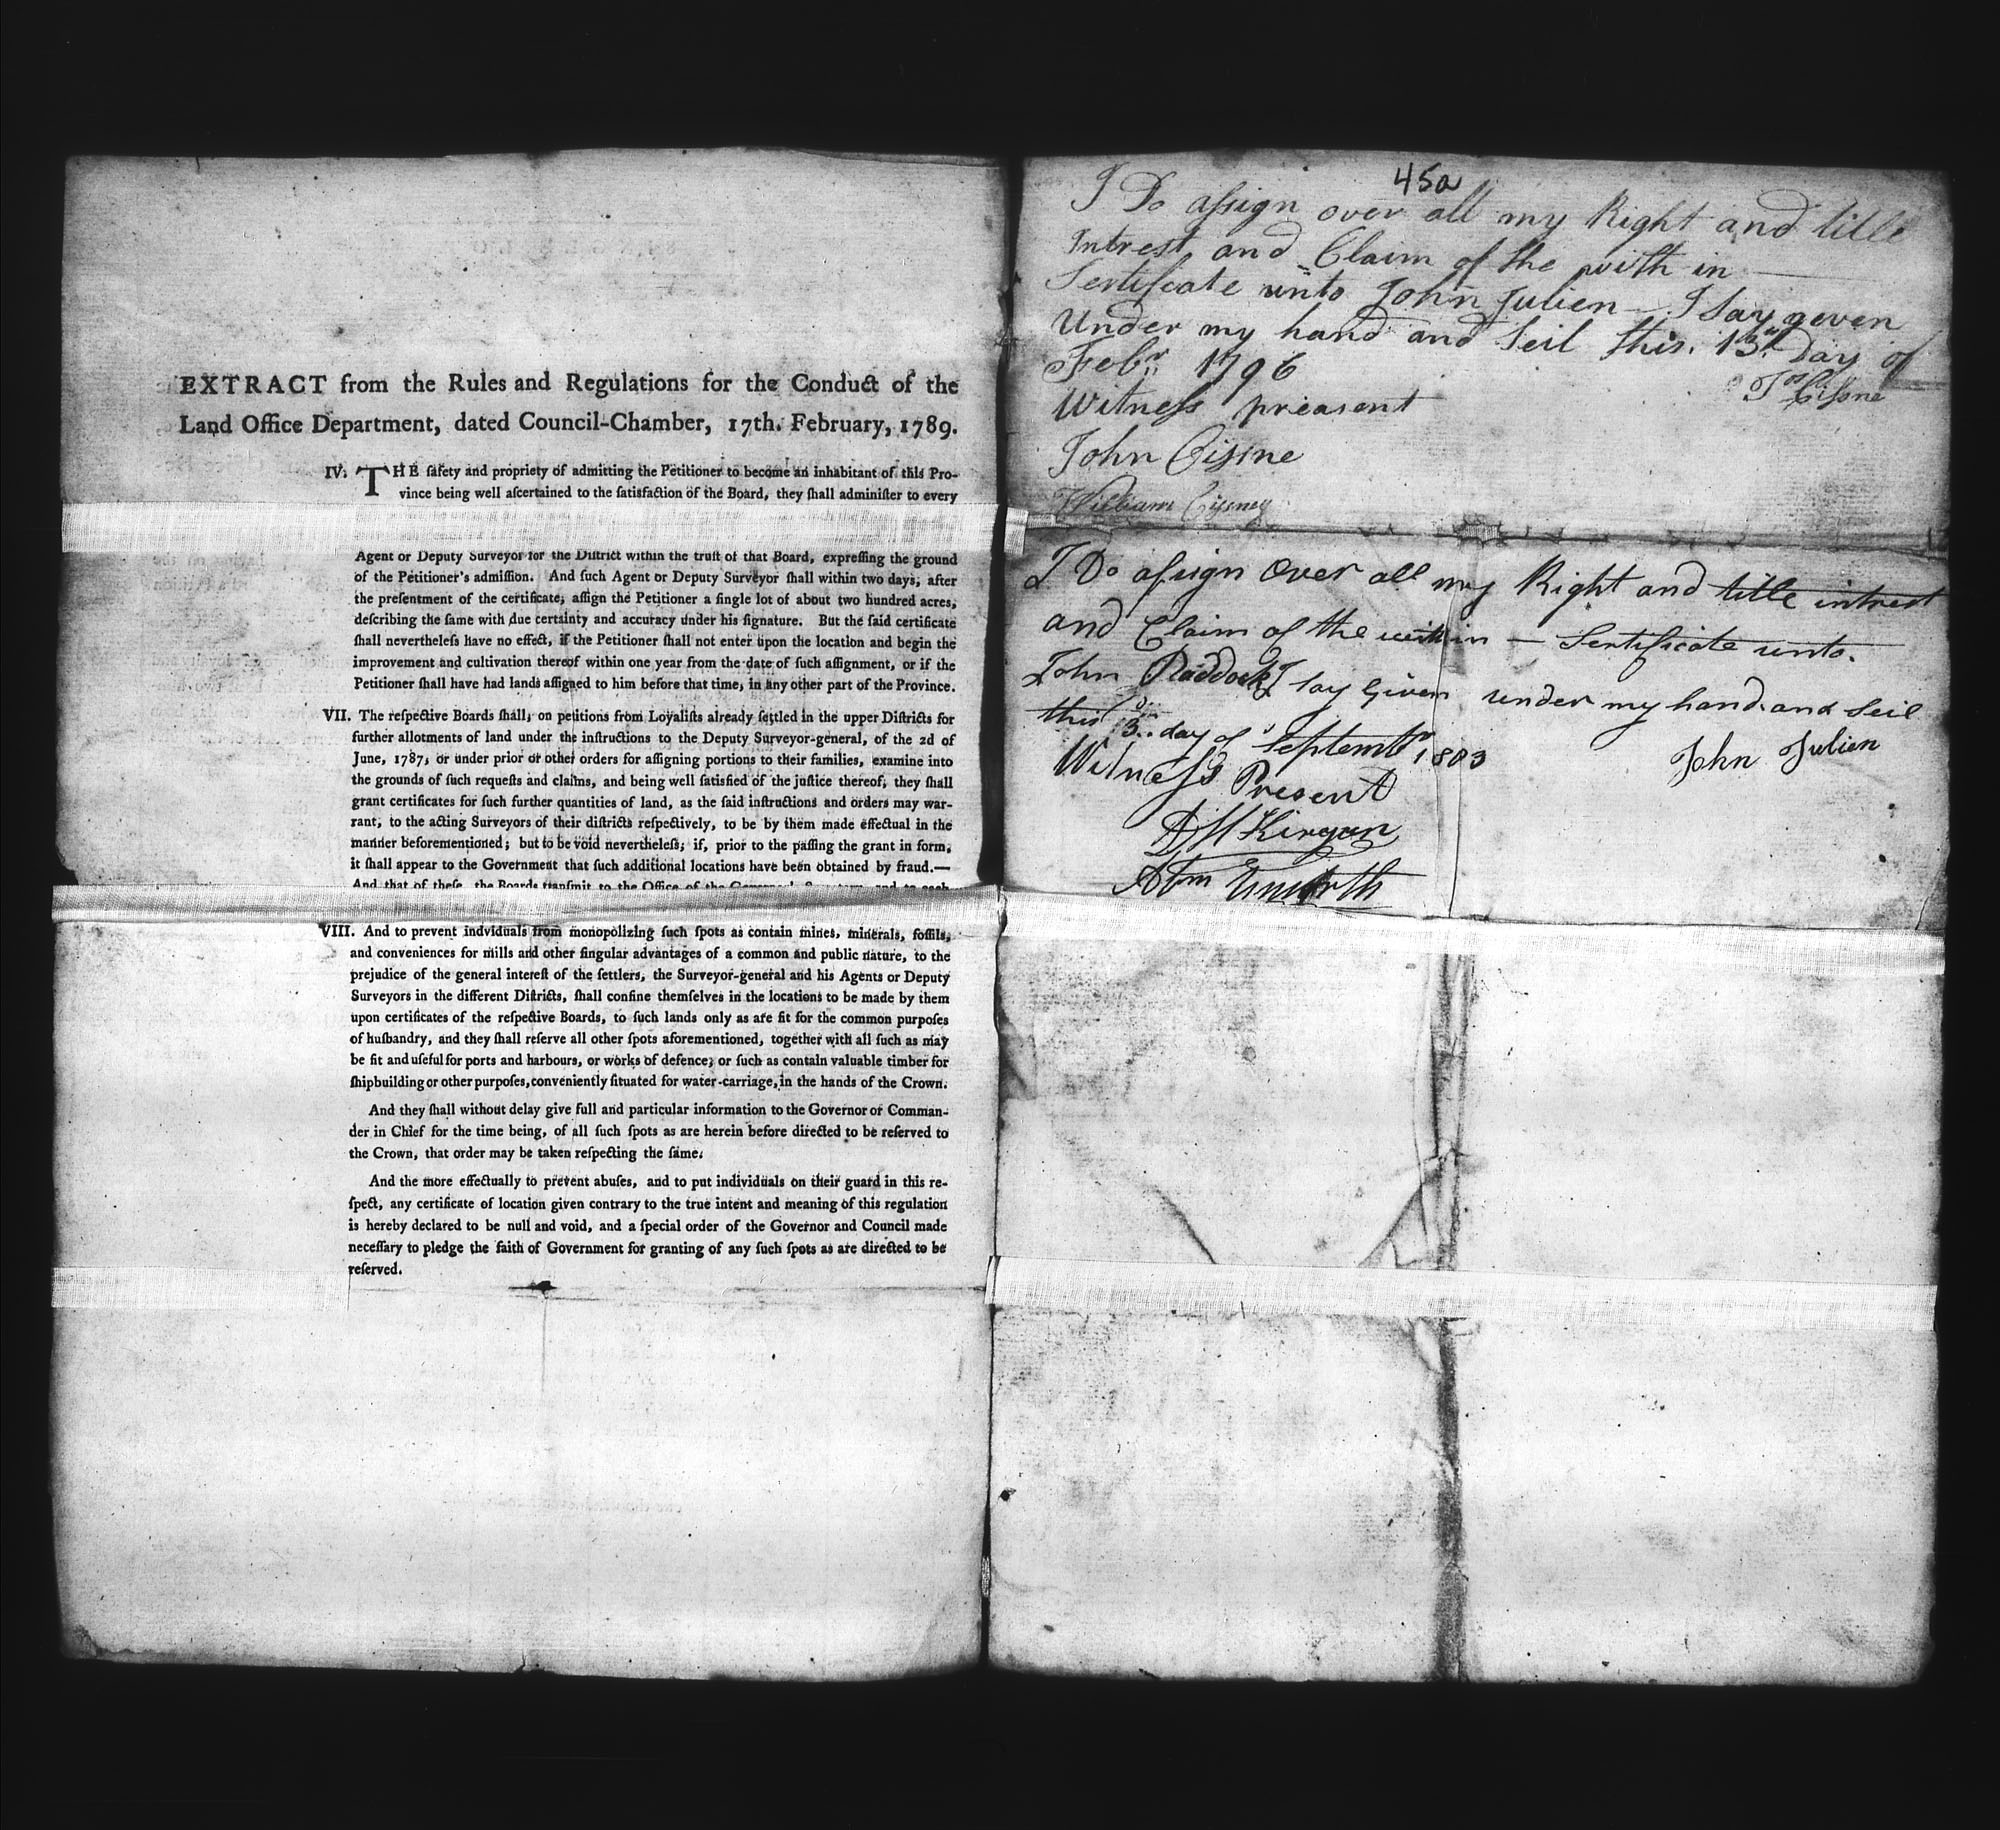 EXTRACT from the Rules and Regulations for the Conduct of the
Land Office Department, dated Council-Chamber, 17th. February, 1789.
IV. THE ſafety and propriety of admitting the Petitioner to become an inhabitant of this Pro-
vince being well aſcertained to the ſatisfaction of the Board, they ſhall adminiſter to every
Agent or Deputy Surveyor for the Diſtrict within the truſt of that Board, expreſſing the ground
of the Petitioner's admiſſion. And ſuch Agent or Deputy Surveyor ſhall within two days, after
the preſentment of the certificate, aſſign the Petitioner a ſingle lot of about two hundred acres,
deſcribing the ſame with due certainty and accuracy under his ſignature. But the ſaid certificate
ſhall nevertheleſs have no effect, if the Petitioner ſhall not enter upon the location and begin the
improvement and cultivation thereof within one year from the date of ſuch aſſignment, or if the
Petitioner ſhall have had lands aſſigned to him before that time, in any other part of the Province.
VII. The reſpective Boards ſhall, on petitions from Loyaliſts already ſettled in the upper Diſtricts for
further allotments of land under the inſtructions to the Deputy Surveyor-general, of the 2d of
June, 1787, or under prior or other orders for aſſigning portions to their families, examine into
the grounds of ſuch requeſts and claims, and being well ſatisfied of the juſtice thereof, they ſhall
grant certificates for ſuch further quantities of land, as the ſaid inſtructions and orders may war-
rant, to the acting Surveyors of their diſtricts reſpectively, to be by them made effectual in the
manner beforementioned; but to be void nevertheleſs, if, prior to the paſſing the grant in form,
it ſhall appear to the Government that ſuch additional locations have been obtained by fraud.—
And that of theſe, the Boards tranſmit to the Office of the Governor's Secretary, and to each
VIII. And to prevent indviduals from monopolizing ſuch ſpots as contain mines, minerals, foſſils,
and conveniences for mills and other ſingular advantages of a common and public nature, to the
prejudice of the general intereſt of the ſettlers, the Surveyor-general and his Agents or Deputy
Surveyors in the different Diſtricts, ſhall confine themſelves in the locations to be made by them
upon certificates of the reſpective Boards, to ſuch lands only as are fit for the common purpoſes
of huſbandry, and they ſhall reſerve all other ſpots aforementioned, together with all ſuch as may
be fit and uſeful for ports and harbours, or works of defence, or ſuch as contain valuable timber for
ſhipbuilding or other purpoſes, conveniently ſituated for water-carriage, in the hands of the Crown.
And they ſhall without delay give full and particular information to the Governor or Comman-
der in Chief for the time being, of all ſuch ſpots as are herein before directed to be reſerved to
the Crown, that order may be taken reſpecting the ſame.
And the more effectually to prevent abuſes, and to put individuals on their guard in this re-
ſpect, any certificate of location given contrary to the true intent and meaning of this regulation
is hereby declared to be null and void, and a ſpecial order of the Governor and Council made
neceſſary to pledge the faith of Government for granting of any ſuch ſpots as are directed to be
reſerved.
45a
I Do aſsign over all my Right and title
Intrest and Claim of the with in —
Sertificate unto John Julien — I Say geven
Under my hand and Seil this 13th Day of
Febr 1796
Jos Cisſne
Witneſs preasent
John Cisſne
William Cisney
I Do aſsign Over all my Right and title intrest
and Claim of the within — Sertificate unto
John Raddock I say Given under my hand and Seil
this 3 day of Septembr 1803
John Julien
Witneſs Present